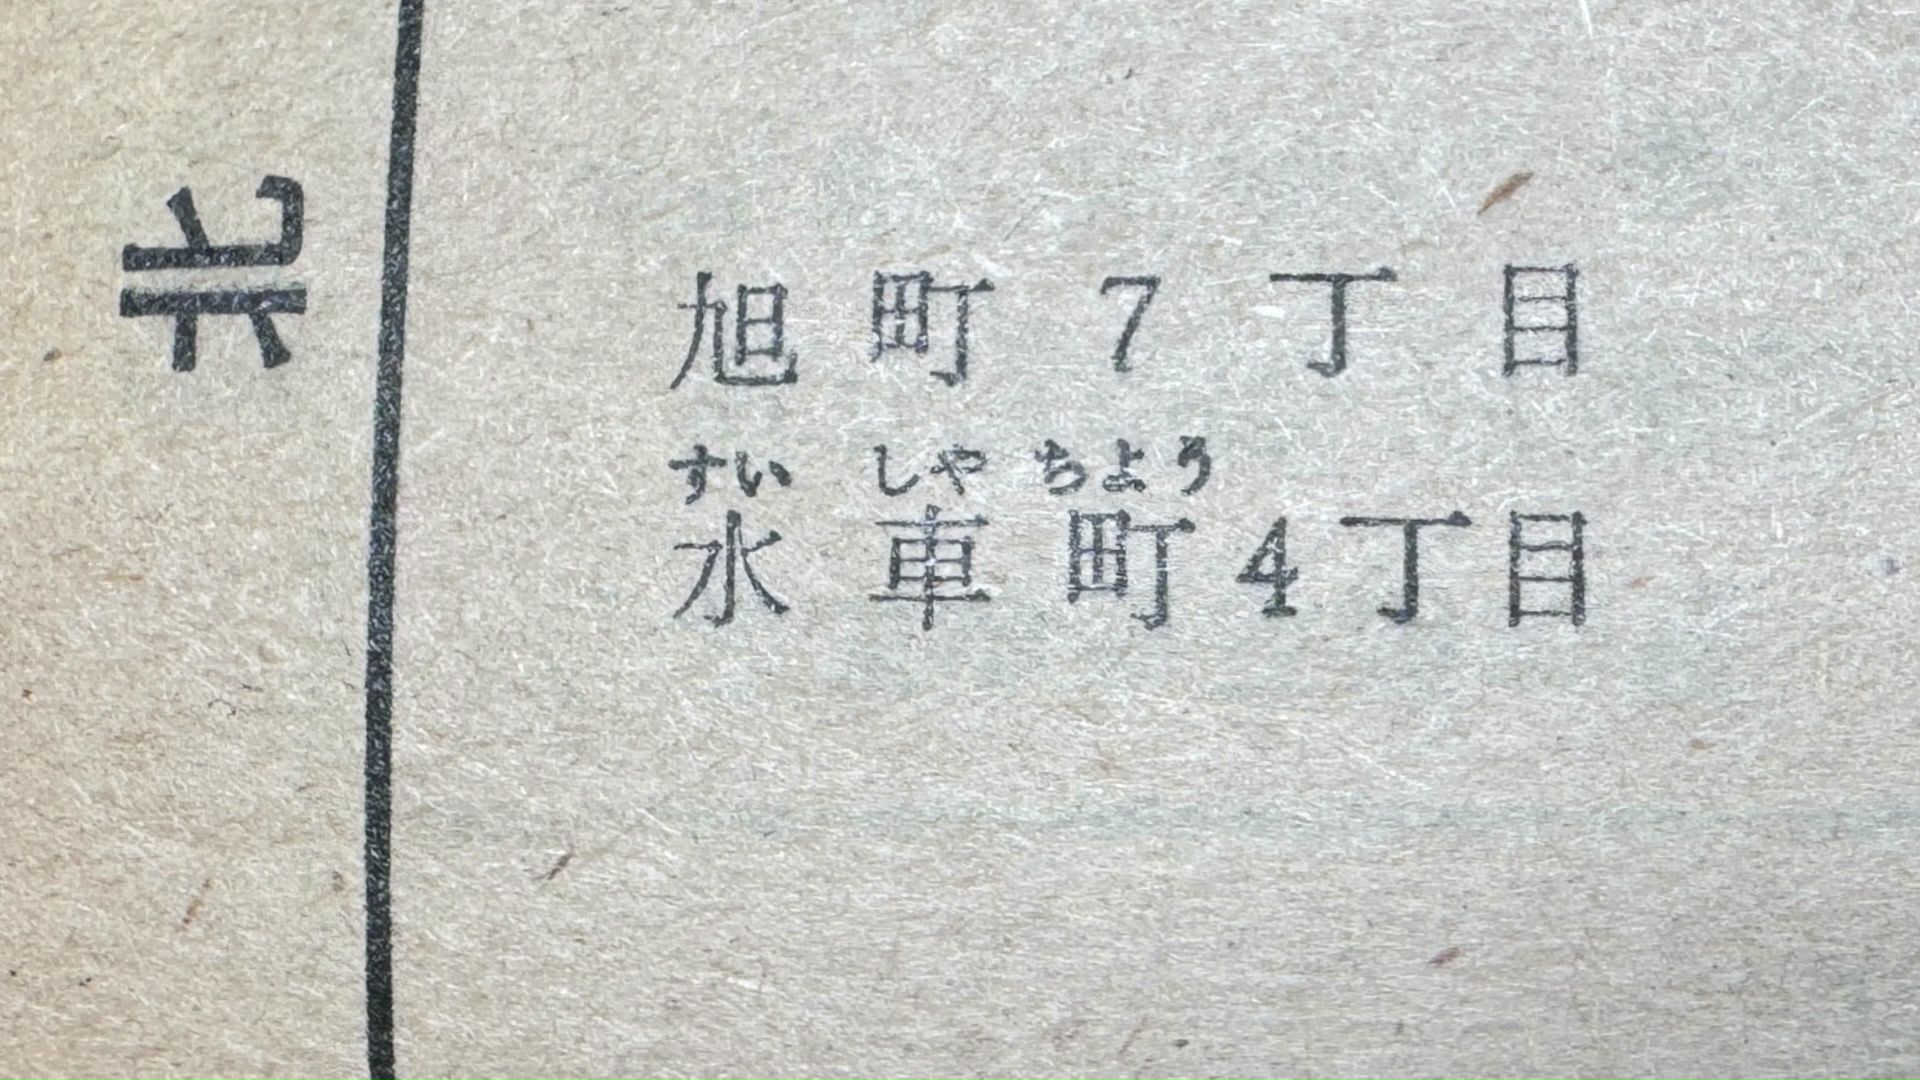 北
旭町7丁目
すいしやちよう
水車町4丁目